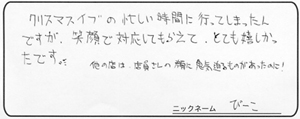 クリスマスイブの忙しい時間に行ってしまったん
ですが、笑顔で対応してもらえて、とても嬉しかっ
たです。
他の店は、店員さんの顔に鬼気迫るものがあったのに!
ニックネーム ぴーこ